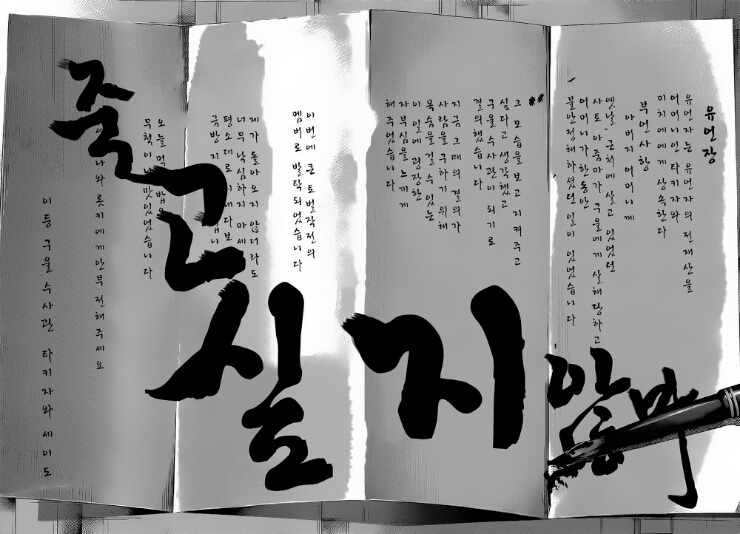 유언장
유언자는 유언자의 전 재산을
어머니인 타키자와
미치에에게 상속한다
부언사항
아버지 어머니께
옛날 근처에 살고 있었던
사토 아줌마가 구울에게 살해당하고
어머니가 한동안
불안정해하셨던 일이 있었습니다
그 모습을 보고 지켜주고
싶다고 생각했고
구울수사관이 되기로
결의했습니다
지금 그때의 결의가
사람을 구하기 위해
목숨을 걸 수 있는
이 일에 굉장한
자부심을 느끼게
해주었습니다
이번에 큰 토벌작전의
멤버로 발탁되었습니다
제가 돌아오지 않더라도
너무 낙심하지 마세
평소대로 지내다 보
금방
오늘 먹
무척이나 맛있었습니다
와 롯키에게 안부 전해주세요
이등 구울수사관 타키자와 세이도
죽고 싶지